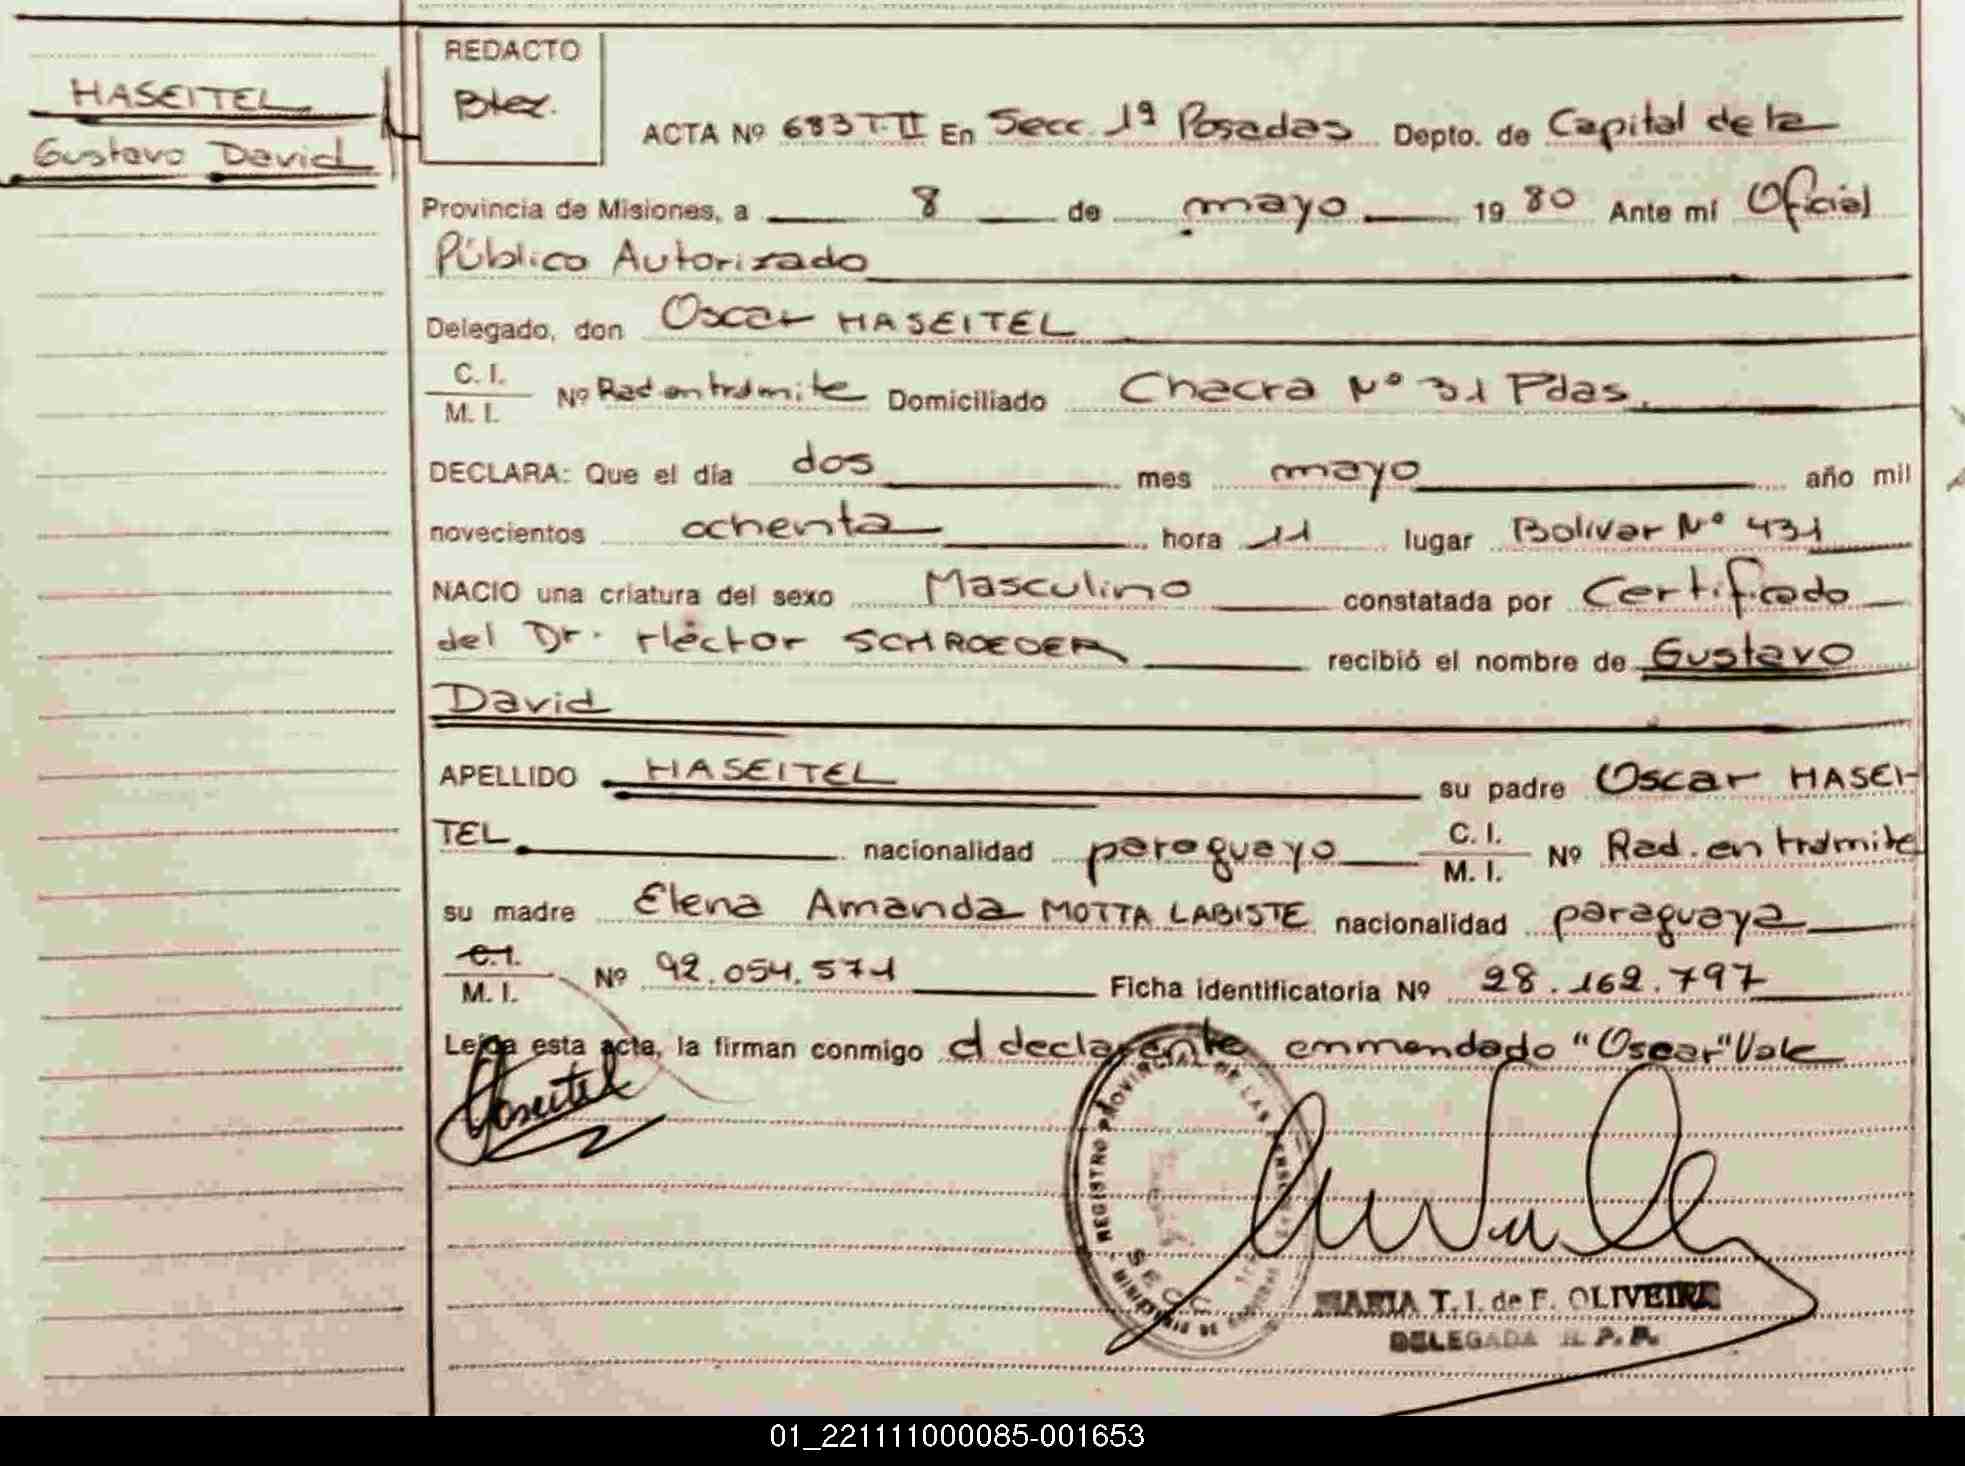 HASEITEL
Gustavo David
REDACTO
ACTA Nº 683 T.II En Secc. 1ª Posadas Depto. de Capital de la
Provincia de Misiones, a 8 de mayo 1980 Ante mí Oficial
Público Autorizado
Delegado, don Oscar HASEITEL
C. I.
M. I.
Nº Rad. en trámite Domiciliado Chacra Nº 31 Pdas.
DECLARA: Que el día dos mes mayo año mil
novecientos ochenta hora 11 lugar Bolivar Nº 431
NACIO una criatura del sexo Masculino constatada por Certificado
del Dr. Héctor SCHROEDER recibió el nombre de Gustavo
David
APELLIDO HASEITEL su padre Oscar HASEI-
TEL nacionalidad paraguayo C. I. M. I. Nº Rad. en trámite
su madre Elena Amanda MOTTA LABISTE nacionalidad paraguaya
C. I.
M. I.
Nº 92.054.571 Ficha identificatoria Nº 28.162.797
Leída esta acta, la firman conmigo el declarante enmendado "Oscar" Vale
Haseitel
REGISTRO PROVINCIAL DE LAS PERSONAS
SECC
MARIA T. I. de F. OLIVEIRA
DELEGADA R. P. P.
01_221111000085-001653